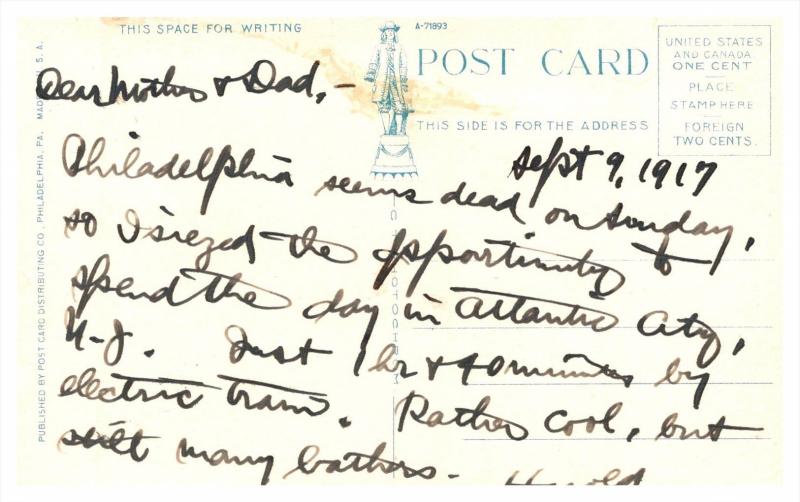 THIS SPACE FOR WRITING
A-71893
POST CARD
THIS SIDE IS FOR THE ADDRESS
UNITED STATES
AND CANADA
ONE CENT
PLACE
STAMP HERE
FOREIGN
TWO CENTS.
PUBLISHED BY POST CARD DISTRIBUTING CO., PHILADELPHIA, PA. MADE IN U.S.A.
PHOTOCHROM
Dear Mother & Dad, -
Sept 9, 1917
Philadelphia seems dead on Sunday,
so I siezed the opportunity to
spend the day in Atlantic City,
N-J. Just 1 hr & 40 minutes by
electric train. Rather cool, but
still many bathers.
Harold